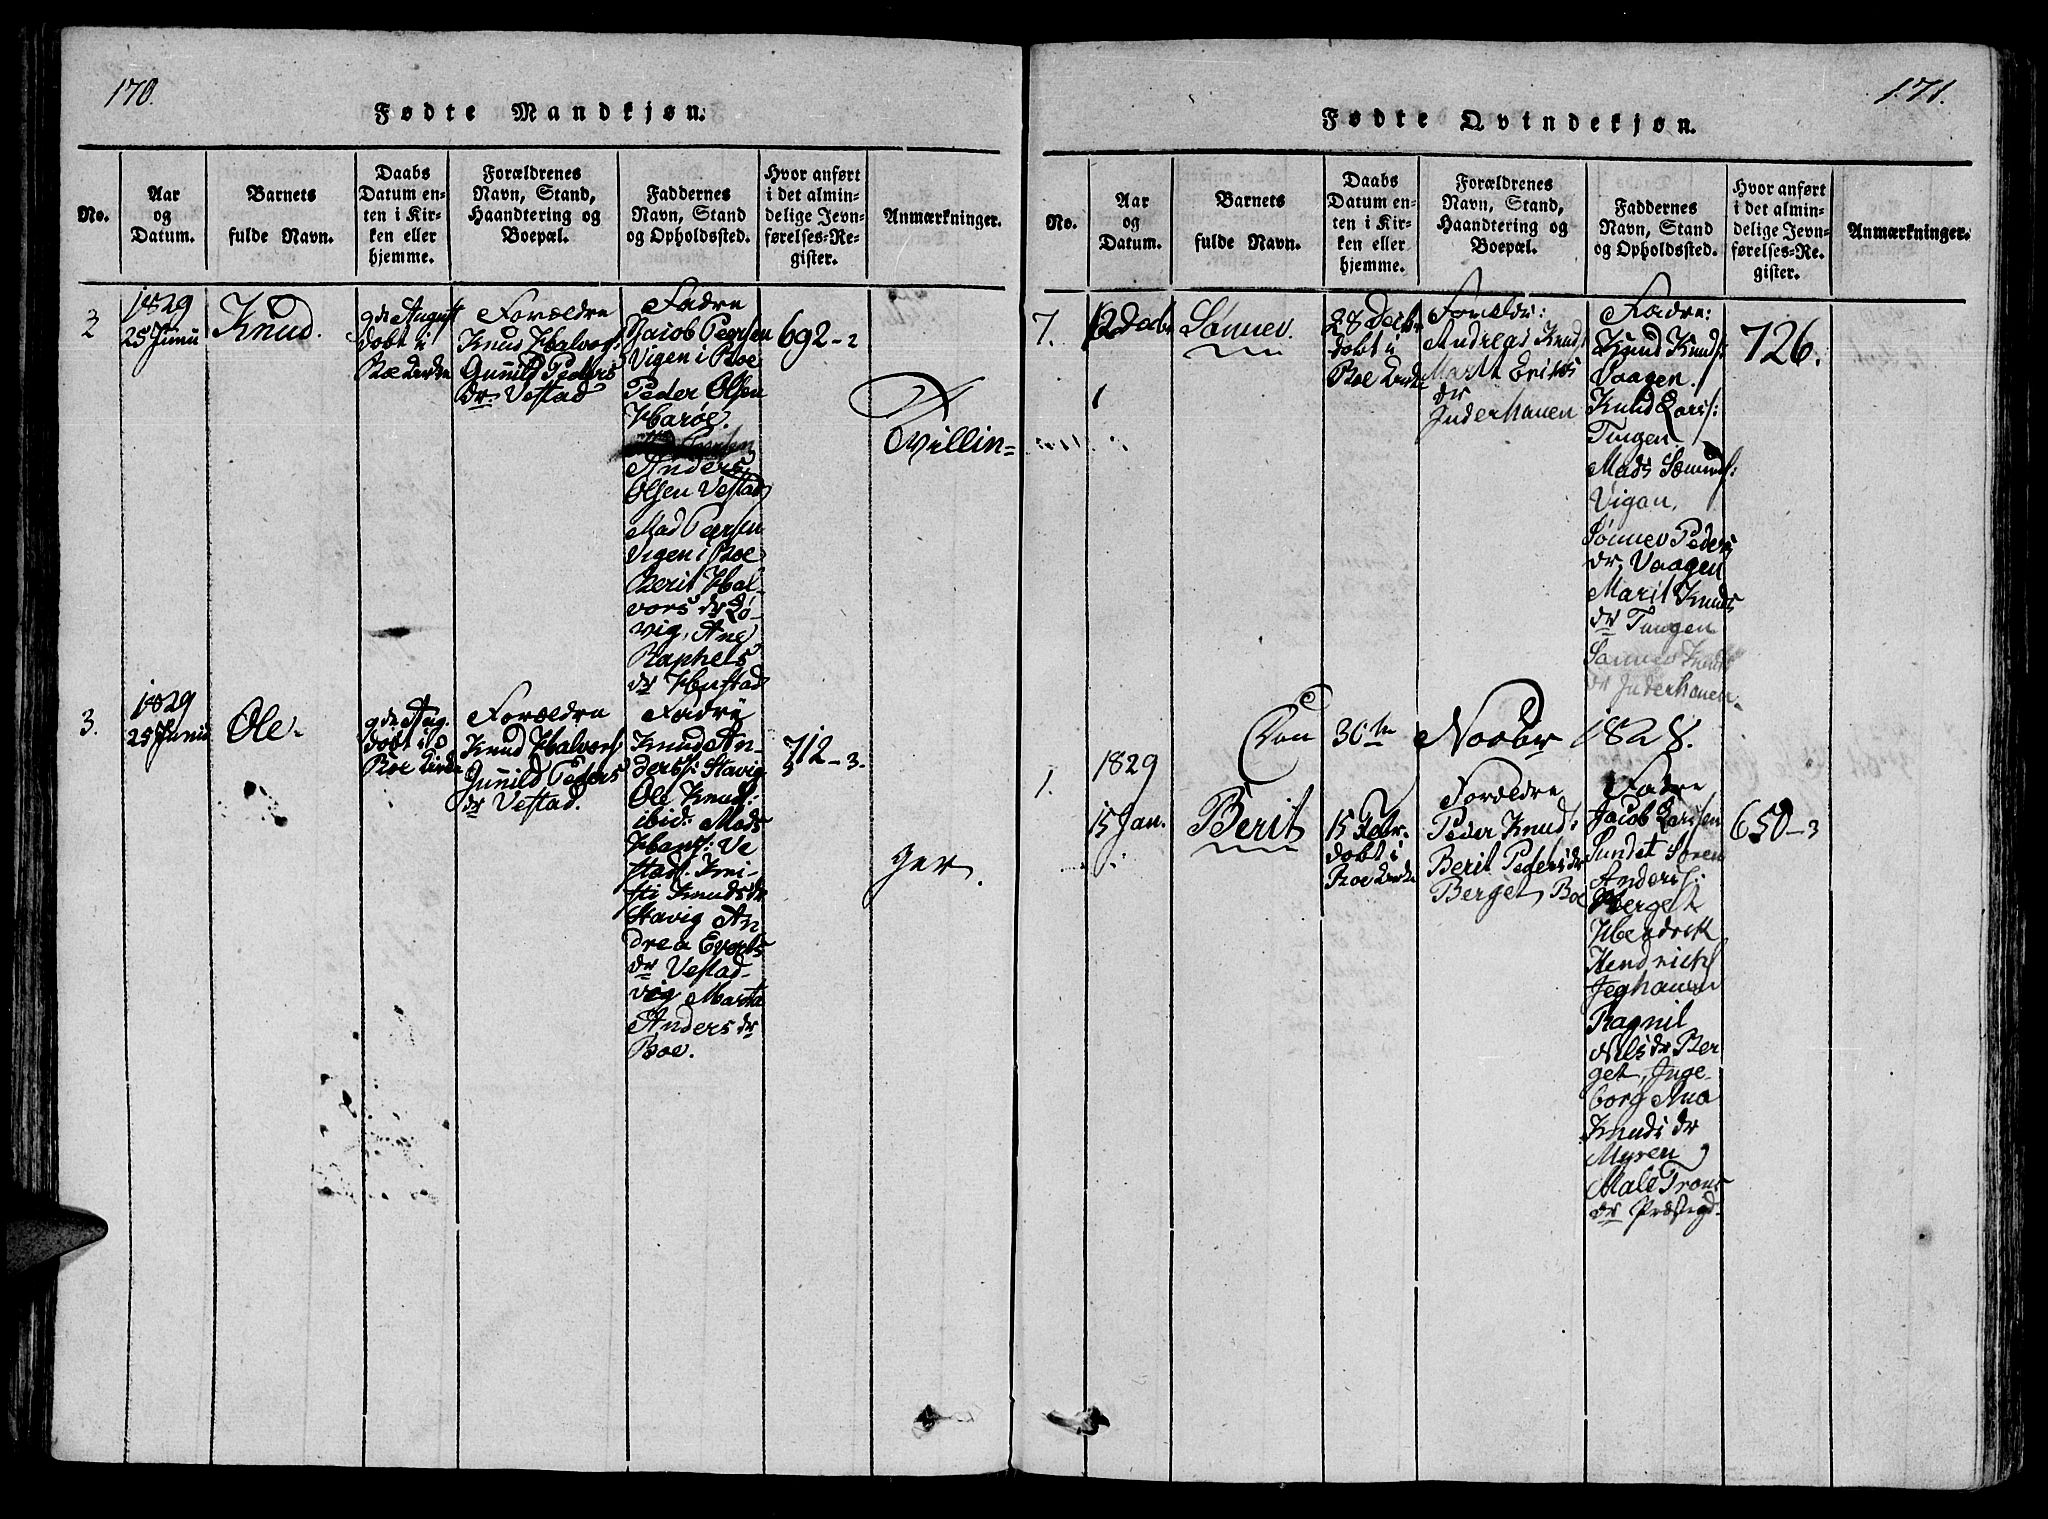 170.
Fødte Mandkjøn.
No.
Aar
og
Datum.
Barnets
fulde Navn.
Daabs
Datum en-
ten i Kir-
ken eller
hjemme.
Forældrenes
Navn, Stand,
Haandtering og
Boepæl.
Faddernes
Navn, Stand
og Opholdssted.
Hvor anført
i det almin-
delige Jevn-
førelses-Re-
gister.
Anmærkninger.
2
1829
25 Junii
Knud.
9de August
døbt i
Boe Kirke
Forældre
Knud Halvors:
Gunild Peders
dr Vestad
Fadre
Jacob Peersen
Vigen i Boe
Peder Olsen
Harøe.
Anders
Olsen Vestad
Mad Peersen
Vigen i Boe
Berit Hal-
vors dr Lø-
vig, Ane
Raphels
dr Hustad
692-2
Tvillin=
3.
1829
25 Junii
Ole.
9de Aug.
døbt i
Boe Kirke
Forældre
Knud Halvors
Gunild Peders
dr Vestad.
Fadre
Knud An-
ders: Stavig
Ole Knud:
ibid: Mads
Hans: Ve
stad. Kri-
sti Knuds dr
Stavig An
drea Everts
dr Vestad-
vig Marta
Anders dr
Boe.
712-3.
ger.
171.
Fødte Qvindekjøn.
No.
Aar
og
Datum.
Barnets
fulde Navn.
Daabs
Datum en-
ten i Kir-
ken eller
hjemme.
Forældrenes
Navn, Stand,
Haandtering og
Boepæl.
Faddernes
Navn, Stand
og Opholdssted.
Hvor anført
i det almin-
delige Jevn-
førelses-Re-
gister.
Anmærkninger.
7.
Sønnev.
28 Decbr
døbt i
Boe Kirke
Andreas Knud:
Marit Eriks
dr
Inderhauen
Fadre:
Knud Knuds:
Vaagen.
Knud Lars:
Tangen.
Mads
Vigan.
Sønnev Peders
dr Vaagen
Marit Knuds
dr Tangen
Sønnev Knuds
dr Inderhauen.
726.
30te Novbr 1828.
1.
1829
15 Jan.
Berit
15 Febr.
døbt i
Boe Kirke
Forældre
Peder Knud:
Berit Peders dr
Berget, Boe
Fadre
Jacob Larssen
Sundet Søren
Anders:
Berget
Hendrik
Hendrichs
Jeghauen
Ragnil
Nils dr Ber
get, Inge-
borg Ana
Knuds dr
Myren
Male Trons
dr
650-3